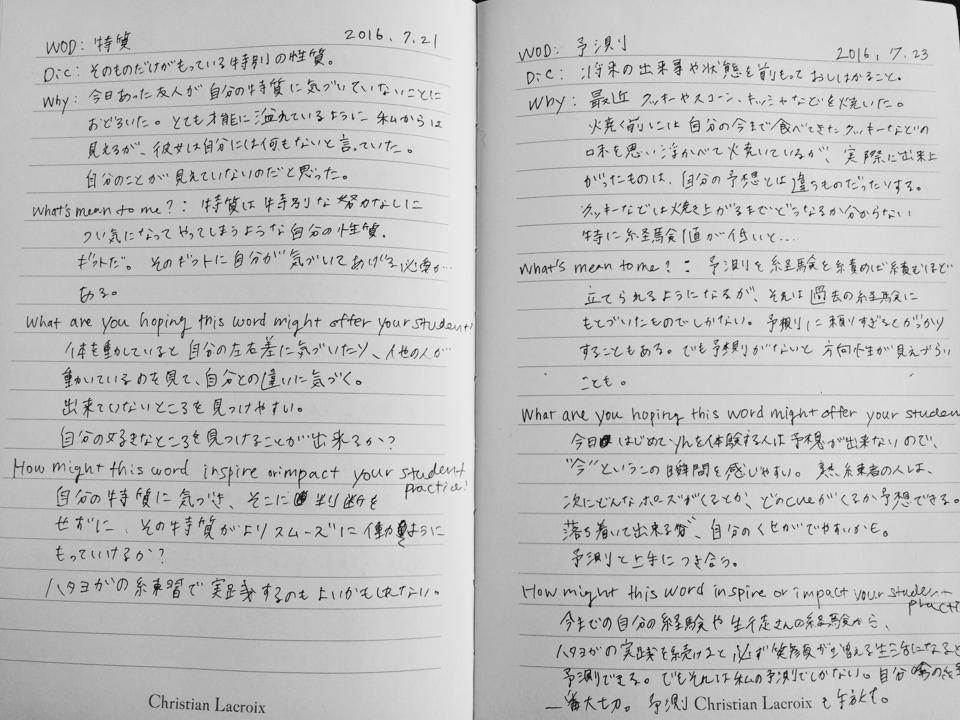 WOD: 特質 2016. 7.21
Dic: そのものだけがもっている特別の性質。
Why: 今日あった友人が自分の特質に気づいていないことに
おどろいた。とても才能に溢れているように私からは
見えるが、彼女は自分には何もないと言っていた。
自分のことが見えていないのだと思った。
What's mean to me?: 特質は特別な努力なしに
つい気になってやってしまうような自分の性質。
ギフトだ。そのギフトに自分が気づいてあげる必要が
ある。
What are you hoping this word might offer your student?
体を動かしていると自分の左右差に気づいたり、他の人が
動いているのを見て、自分との違いに気づく。
出来ていないところを見つけやすい。
自分の好きなところを見つけることが出来るか?
How might this word inspire or impact your student
practice?
自分の特質に気づき、そこに判断を
せずに、その特質がよりスムーズに働くように
もっていけるか?
ハタヨガの練習で実践するのもよいかもしれない。
Christian Lacroix
WOD: 予測 2016, 7.23
Dic: 将来の出来事や状態を前もっておしはかること。
Why: 最近 クッキーやスコーン、キッシュなどを焼いた。
火焼く前には自分の今まで食べてきたクッキーなどの
味を思い浮かべて焼いているが、実際に出来上
がったものは、自分の予想とは違うものだったりする。
クッキーなどは焼き上がるまでどうなるか分からない
特に経験値が低いと....
What's mean to me?: 予測を経験を積めば積むほど
立てられるようになるが、それは過去の経験に
もとづいたものでしかない。予測に頼りすぎるとがっかり
することもある。でも予測がないと方向性が見えづらい
ことも。
What are you hoping this word might offer your studen
今日はじめてyinを体験する人は予想が出来ないので、
"今"というこの瞬間を感じやすい。熟練者の人は、
次にどんなポーズがくるとか、どのcueがくるか予想できる。
落ち着いて出来る分、自分のくせがでやすいかも。
予測と上手につき合う。
How might this word inspire or impact your student
practi
今までの自分の経験や生徒さんの経験から、
ハタヨガの実践を続けると必ず笑顔が増える生活になると
予測できる。でもそれは私の予測でしかない。自分
一番大切。予測 Christian Lacroix も手放す。